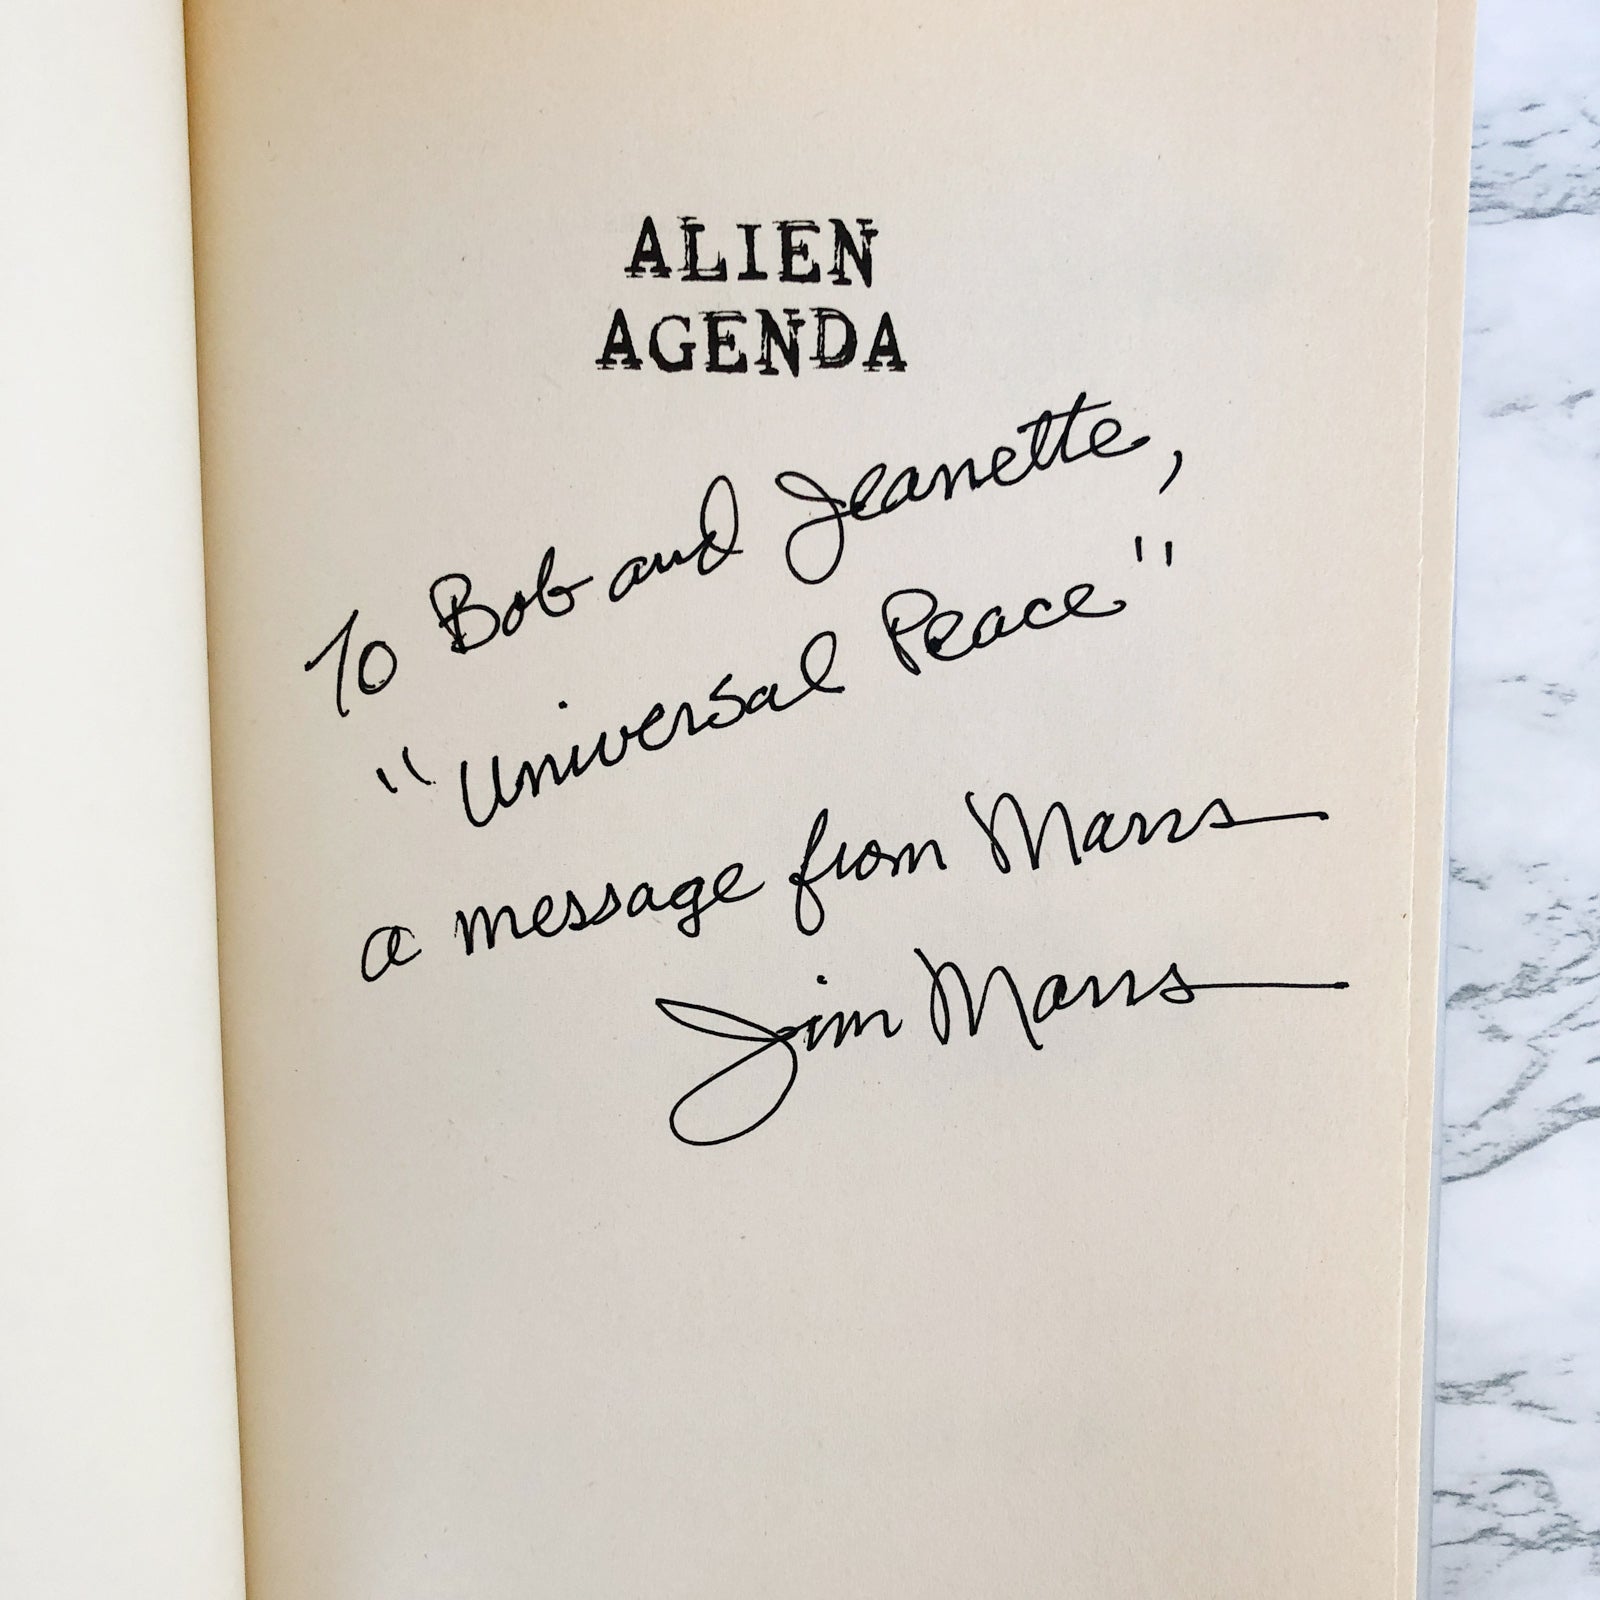 ALIEN
AGENDA
To Bob and Jeanette,
"Universal Peace"
a message from Marrs
Jim Marrs